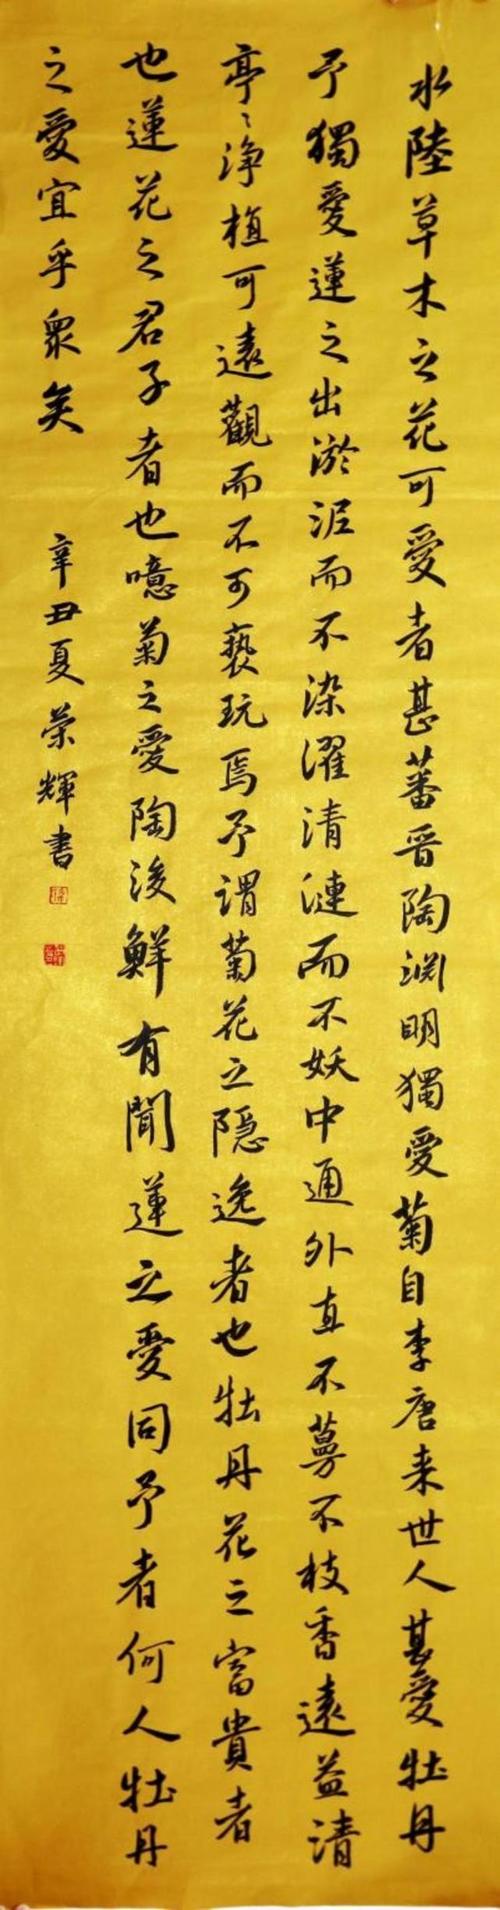 水陸草木之花可愛者甚蕃晋陶淵明獨愛菊自李唐来世人甚愛牡丹
予獨愛蓮之出淤泥而不染濯清漣而不妖中通外直不蔓不枝香遠益清
亭〻淨植可遠觀而不可褻玩焉予謂菊花之隐逸者也牡丹花之富貴者
也蓮花之君子者也噫菊之愛陶後鮮有聞蓮之愛同予者何人牡丹
之愛宜乎眾矣
辛丑夏榮輝書